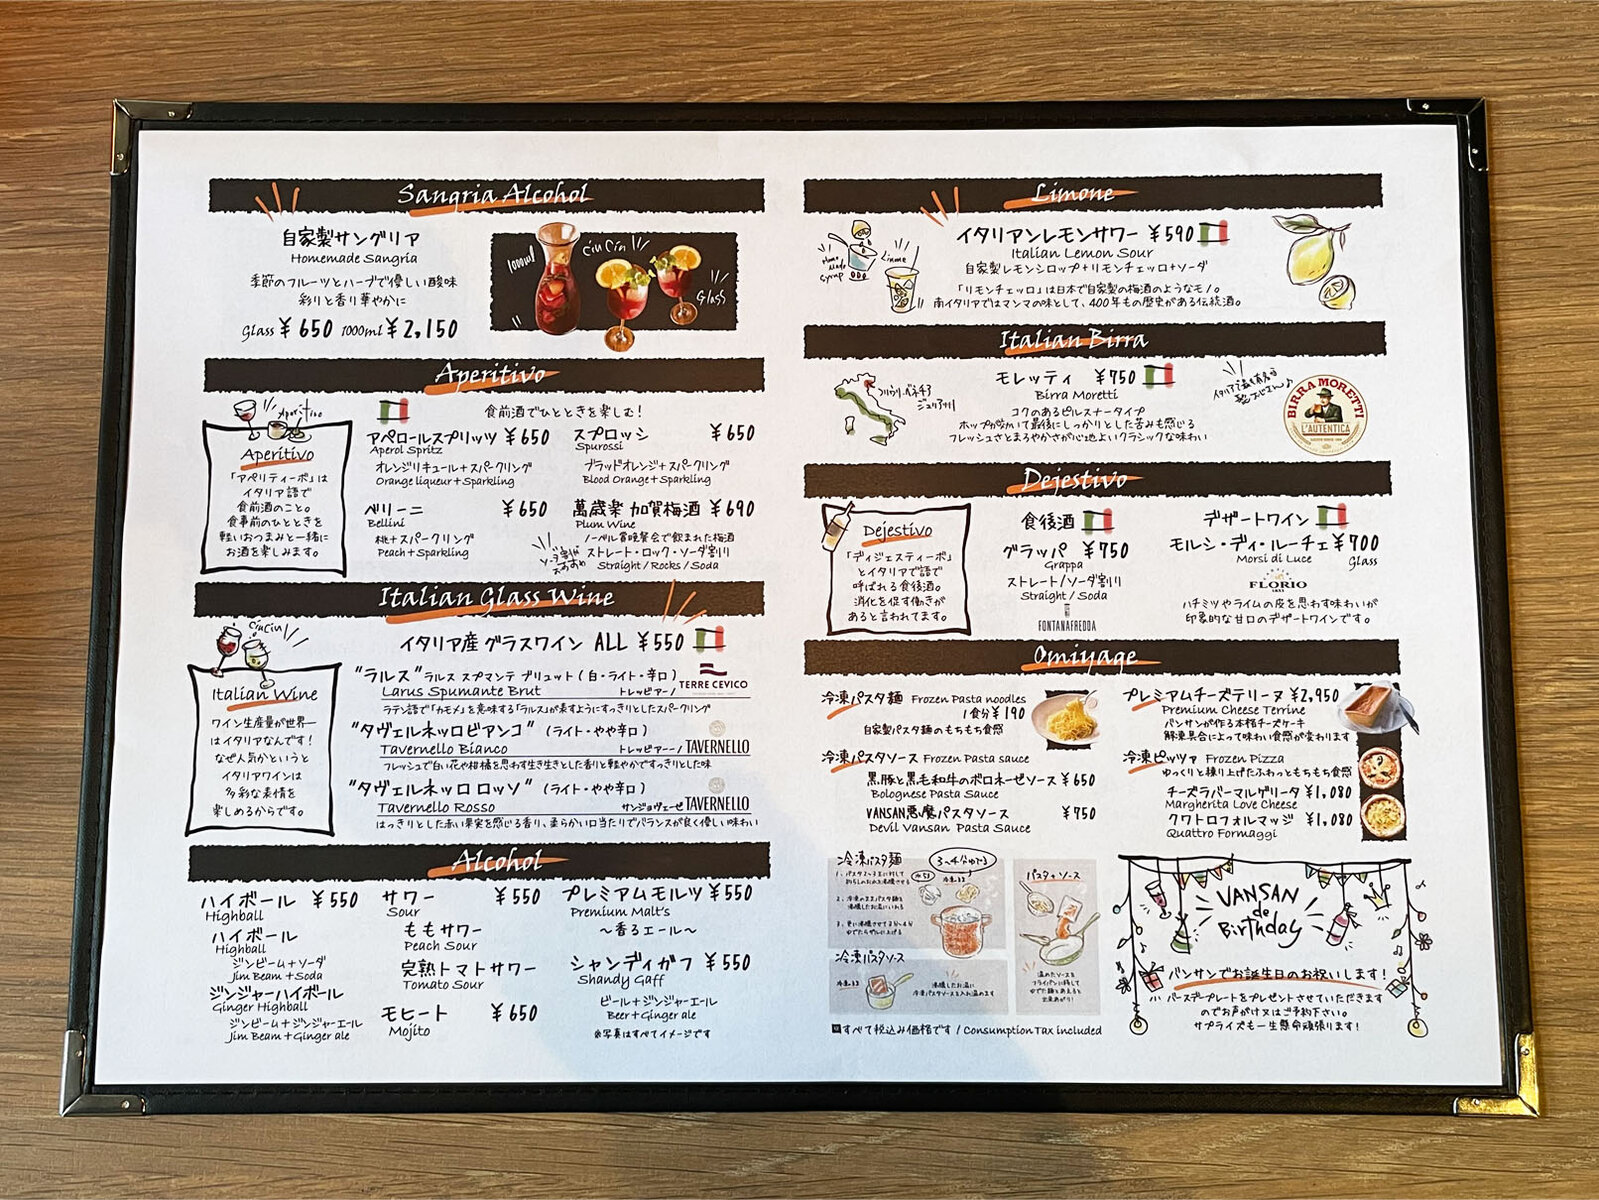 Sangria Alcohol
自家製サングリア
Homemade Sangria
季節のフルーツとハーブで優しい酸味
彩りと香り華やかに
Glass ¥650 1000ml ¥2,150
1000ml
Cin Cin
Glass
Aperitivo
Aperitivo
Aperitivo
「アペリティーボ」は
イタリア語で
食前酒のこと。
食事前のひとときを
軽いおつまみと一緒に
お酒を楽しみます。
食前酒でひとときを楽しむ!
アペロールスプリッツ ¥650
Aperol Spritz
オレンジリキュール+スパークリング
Orange liqueur + Sparkling
スプロッシ ¥650
Spurossi
ブラッドオレンジ+スパークリング
Blood Orange + Sparkling
ベリーニ ¥650
Bellini
桃+スパークリング
Peach + Sparkling
萬歳楽 加賀梅酒 ¥690
Plum Wine
ノーベル賞晩餐会で飲まれた梅酒
ストレート・ロック・ソーダ割り
Straight / Rocks / Soda
ソーダ割が
おすすめ
Italian Glass Wine
Cin Cin
Italian Wine
ワイン生産量が世界一
はイタリアなんです!
なぜ人気かというと
イタリアワインは
多彩な表情を
楽しめるからです。
イタリア産グラスワイン ALL ¥550
"ラルス" ラルス スプマンテ ブリュット (白・ライト・辛口)
Larus Spumante Brut トレッビアーノ
TERRE CEVICO
ラテン語で「カモメ」を意味する「ラルス」が表すようにすっきりとしたスパークリング
"タヴェルネッロビアンコ" (ライト・やや辛口)
Tavernello Bianco トレッビアーノ TAVERNELLO
フレッシュで白い花や柑橘を思わす生き生きとした香りと軽やかですっきりとした味
"タヴェルネッロ ロッソ" (ライト・やや辛口)
Tavernello Rosso サンジョヴェーゼ TAVERNELLO
はっきりとした赤い果実を感じる香り、柔らかい口当たりでバランスが良く優しい味わい
Alcohol
ハイボール ¥550
Highball
ハイボール
Highball
ジンビーム+ソーダ
Jim Beam + Soda
ジンジャーハイボール
Ginger Highball
ジンビーム+ジンジャーエール
Jim Beam + Ginger ale
サワー ¥550
Sour
ももサワー
Peach Sour
完熟トマトサワー
Tomato Sour
モヒート ¥650
Mojito
プレミアムモルツ ¥550
Premium Malt's
~香るエール~
シャンディガフ ¥550
Shandy Gaff
ビール+ジンジャーエール
Beer + Ginger ale
※写真はすべてイメージです
Limone
Home
made
syrup
Limone
イタリアンレモンサワー ¥590
Italian Lemon Sour
自家製レモンシロップ+リモンチェッロ+ソーダ
「リモンチェッロ」は日本で自家製の梅酒のようなモノ。
南イタリアではマンマの味として、400年もの歴史がある伝統酒。
Italian Birra
モレッティ ¥750
Birra Moretti
コクのあるピルスナータイプ
ホップが効いて最後にしっかりとした苦みも感じる
フレッシュさとまろやかさが心地よいクラシックな味わい
BIRRA MORETTI
L'AUTENTICA
Dejestivo
Dejestivo
「ディジェスティーボ」
とイタリア語で
呼ばれる食後酒。
消化を促す働きが
あると言われてます。
食後酒
グラッパ ¥750
Grappa
ストレート/ソーダ割り
Straight / Soda
FONTANAFREDDA
デザートワイン
モルシ・ディ・ルーチェ ¥700
Morsi di Luce Glass
FLORIO
ハチミツやライムの皮を思わす味わいが
印象的な甘口のデザートワインです。
Omiyage
冷凍パスタ麺 Frozen Pasta noodles
1食分 ¥190
自家製パスタ麺のもちもち食感
冷凍パスタソース Frozen Pasta sauce
黒豚と黒毛和牛のボロネーゼソース ¥650
Bolognese Pasta Sauce
VANSAN悪魔パスタソース ¥750
Devil Vansan Pasta Sauce
プレミアムチーズテリーヌ ¥2,950
Premium Cheese Terrine
バンサンが作る本格チーズケーキ
解凍具合によって味わい食感が変わります
冷凍ピッツァ Frozen Pizza
ゆっくりと練り上げたふわっともちもち食感
チーズラバーマルゲリータ ¥1,080
Margherita Love Cheese
クワトロフォルマッジ ¥1,080
Quattro Formaggi
冷凍パスタ麺
3~4分ゆでる
冷凍パスタソース
パスタ+ソース
温めたソースを
フライパンに移して
ゆでた麺とあえると
出来あがり!
VANSAN
de
Birthday
バンサンでお誕生日のお祝いします!
バースデープレートをプレゼントさせていただきます
のでお声がけ又はご予約下さい。
サプライズも一生懸命頑張ります!
すべて税込み価格です / Consumption Tax included